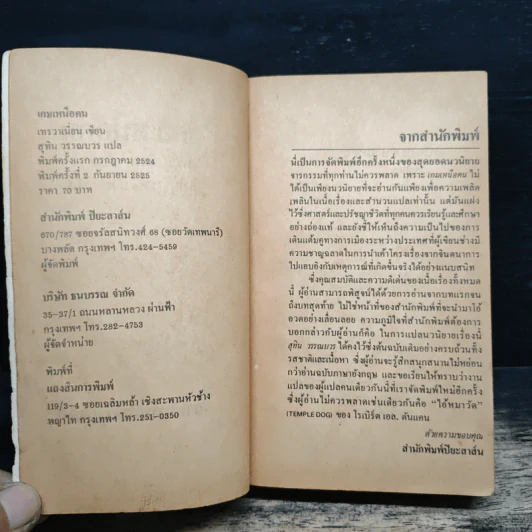 เกมเหนือคน
เทรวาเนี่ยน เขียน
สุทิน วรรณบวร แปล
พิมพ์ครั้งแรก กรกฎาคม 2524
พิมพ์ครั้งที่ 2 กันยายน 2525
ราคา 70 บาท
สำนักพิมพ์ ปิยะสาส์น
670/787 ซอยจรัลสนิทวงศ์ 68 (ซอยวัดเทพนารี)
บางพลัด กรุงเทพฯ โทร.424-5459
ผู้จัดพิมพ์
บริษัท ธนบรรณ จำกัด
35-37/1 ถนนหลานหลวง ผ่านฟ้า
กรุงเทพฯ โทร.282-4753
ผู้จัดจำหน่าย
พิมพ์ที่
แสงสินการพิมพ์
119/3-4 ซอยเฉลิมหล้า เชิงสะพานหัวช้าง
พญาไท กรุงเทพฯ โทร.251-0350
จากสำนักพิมพ์
นี่เป็นการจัดพิมพ์อีกครั้งหนึ่งของสุดยอดนวนิยาย
จารกรรมที่ทุกท่านไม่ควรพลาด เพราะ เกมเหนือคน ไม่
ได้เป็นเพียงนวนิยายที่จะอ่านกันเพียงเพื่อความเพลิด
เพลินในเนื้อเรื่องและสำนวนแปลเท่านั้น แต่มันแฝง
ไว้ซึ่งศาสตร์และปรัชญาชีวิตที่ทุกคนควรเรียนรู้และศึกษา
อย่างถ่องแท้ และยังชี้ให้เห็นถึงความเป็นไปของการ
เดินแต้มคูทางการเมืองระหว่างประเทศที่ผู้เขียนช่างมี
ความชาญฉลาดในการนำเค้าโครงเรื่องจากจินตนาการ
ไปแอบอิงกับเหตุการณ์ที่เกิดขึ้นจริงได้อย่างแนบสนิท
ซึ่งคุณสมบัติและความดีเด่นของเนื้อเรื่องทั้งหมด
นี้ ผู้อ่านสามารถพิสูจน์ได้ด้วยการอ่านจากบทแรกจน
ถึงบทสุดท้าย ไม่ใช่หน้าที่ของสำนักพิมพ์ที่จะนำมาโอ้
อวดอย่างเลื่อนลอย ความภูมิใจที่สำนักพิมพ์ต้องการ
บอกกล่าวกับผู้อ่านก็คือ ในการแปลนวนิยายเรื่องนี้
สุทิน วรรณบวร ได้คงไว้ซึ่งต้นฉบับเดิมอย่างครบถ้วนทั้ง
รสชาติและเนื้อหา ซึ่งผู้อ่านจะรู้สึกสนุกสนานไม่หย่อน
กว่าอ่านฉบับภาษาอังกฤษ และขอเรียนให้ทราบว่างาน
แปลของผู้แปลคนเดียวกันนี้ที่เราจัดพิมพ์ใหม่อีกครั้ง
ซึ่งผู้อ่านไม่ควรพลาดเช่นเดียวกันคือ "ไอ้หมาวัด"
(TEMPLE DOG) ของ โรเบิร์ต เอล. ดันแคน
ด้วยความขอบคุณ
สำนักพิมพ์ปิยะสาส์น